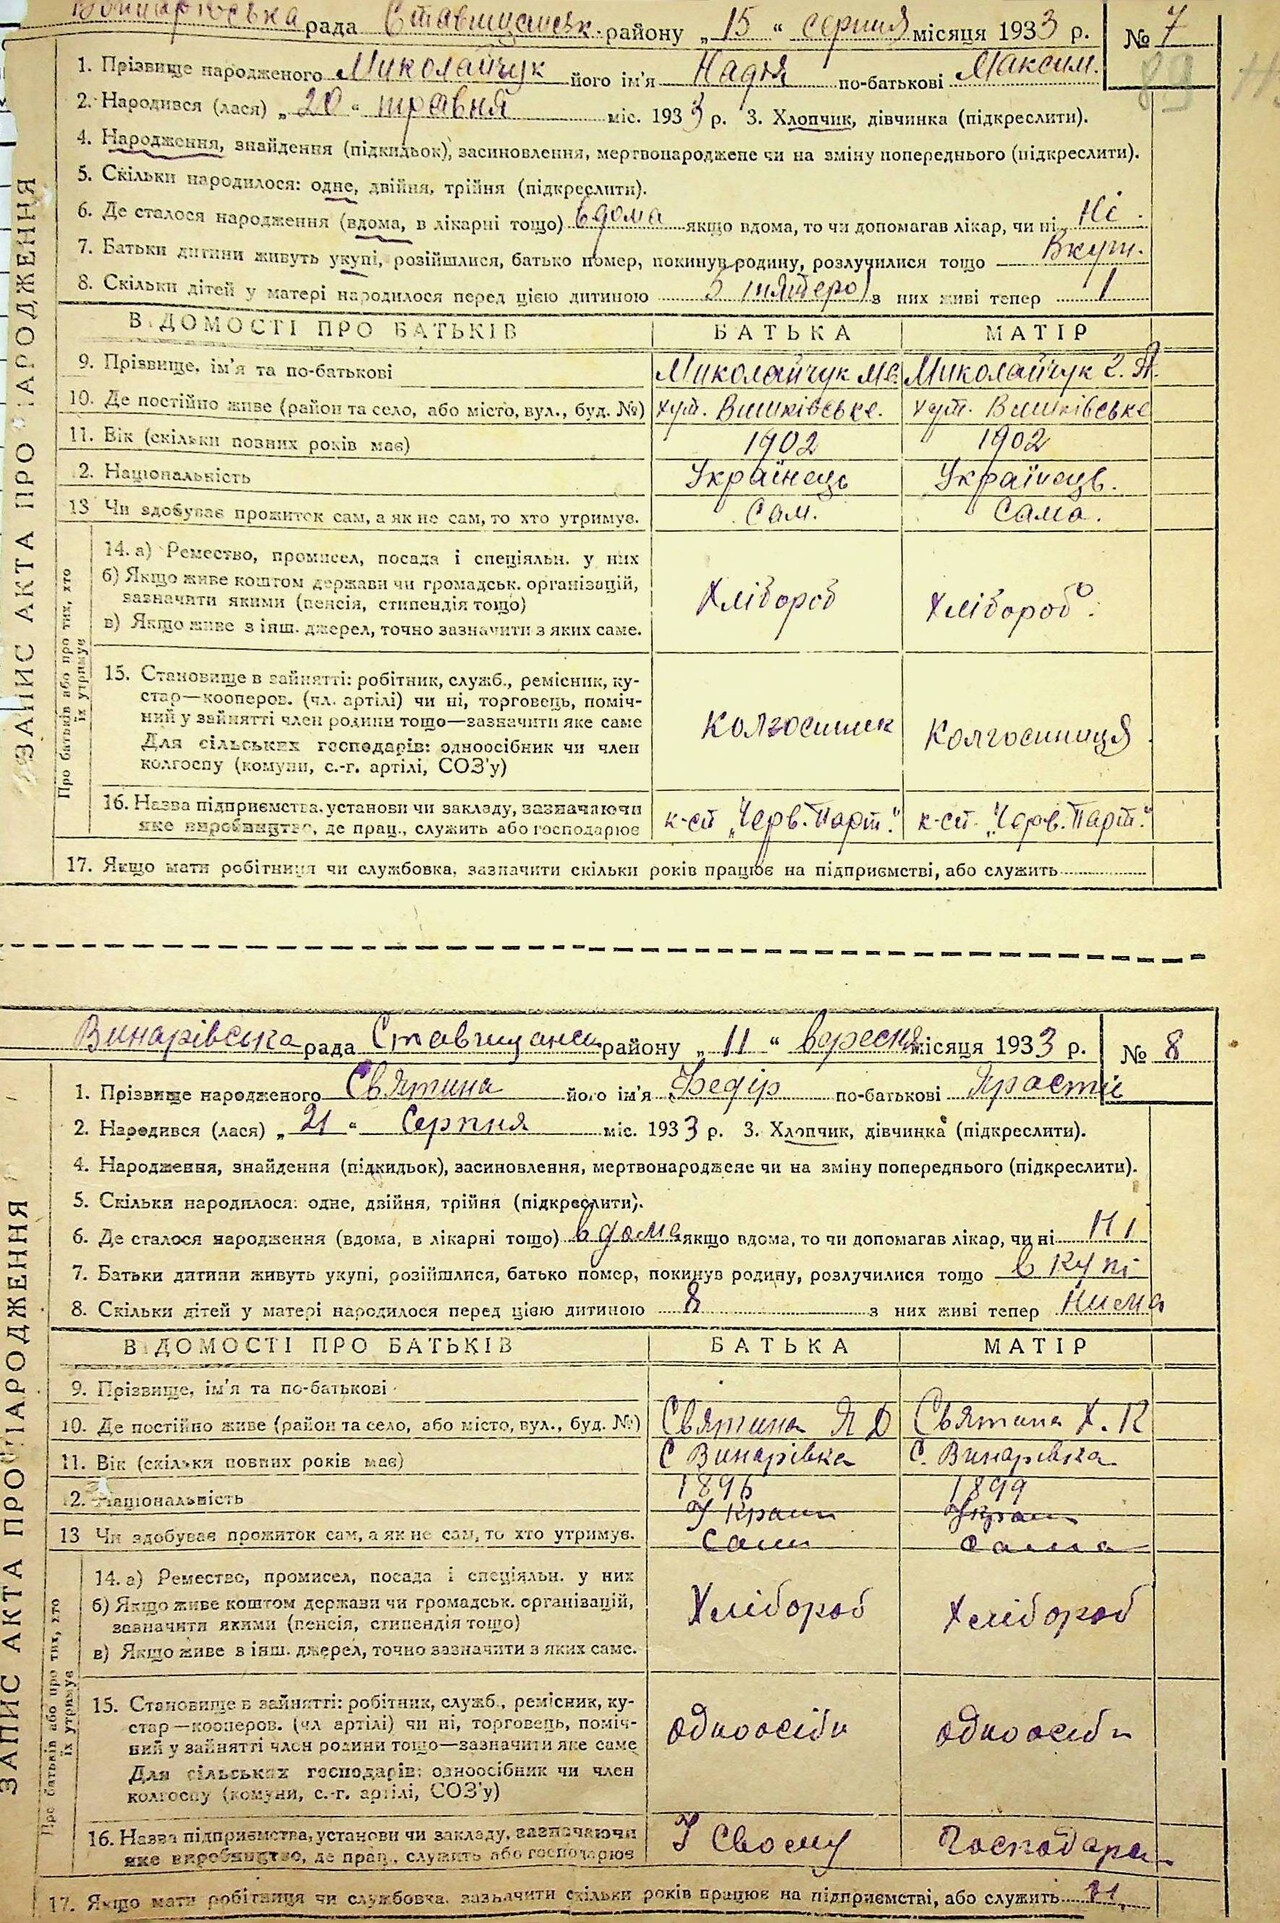 рада Ставищанськ. району „15“ серпня місяця 1933 р. № 7
1. Прізвище народженого Миколайчук його ім'я Надія по-батькові Максим.
89
2. Народився (лася) „20“ травня міс. 1933 р. 3. Хлопчик, дівчинка (підкреслити).
4. Народження, знайдення (підкидьок), засиновлення, мертвонароджене чи на зміну попереднього (підкреслити).
5. Скільки народилося: одне, двійня, трійня (підкреслити).
6. Де сталося народження (вдома, в лікарні тощо) вдома якщо вдома, то чи допомагав лікар, чи ні Ні.
7. Батьки дитини живуть укупі, розійшлися, батько помер, покинув родину, розлучилися тощо Вкуп.
8. Скільки дітей у матері народилося перед цією дитиною 5 пятеро з них живі тепер 1
ЗАПИС АКТА ПРО НАРОДЖЕННЯ
ВІДОМОСТІ ПРО БАТЬКІВ БАТЬКА МАТІР
9. Прізвище, ім'я та по-батькові Миколайчук Ма. Миколайчук
10. Де постійно живе (район та село, або місто, вул., буд. №) хут. Вишківське. хут. Вишківське
11. Вік (скільки повних років має) 1902 1902
12. Національність Українець Українець.
13 Чи здобуває прожиток сам, а як не сам, то хто утримує. Сам. Сама.
Про батьків або про тих, хто їх утримує
14. а) Ремество, промисел, посада і спеціяльн. у них
б) Якщо живе коштом держави чи громадськ. організацій,
зазначити якими (пенсія, стипендія тощо) Хлібороб Хлібороб.
в) Якщо живе з інш. джерел, точно зазначити з яких саме.
15. Становище в зайнятті: робітник, служб., ремісник, ку-
стар—кооперов. (чл. артілі) чи ні, торговець, поміч-
ний у зайнятті член родини тощо—зазначити яке саме Колгоспник Колгоспниця
Для сільських господарів: одноосібник чи член
колгоспу (комуни, с.-г. артілі, СОЗ'у)
16. Назва підприємства, установи чи закладу, зазначаючи
яке виробництво, де прац., служить або господарює к-сп „Черв. Парт.“ к-сп. „Черв. Парт.“
17. Якщо мати робітниця чи службовка, зазначити скільки років працює на підприємстві, або служить
Винарівська рада Ставищанськ району „11“ вересня місяця 1933 р. № 8
1. Прізвище народженого Святина його ім'я Федір по-батькові
2. Народився (лася) „21“ Серпня міс. 1933 р. 3. Хлопчик, дівчинка (підкреслити).
4. Народження, знайдення (підкидьок), засиновлення, мертвонароджене чи на зміну попереднього (підкреслити).
5. Скільки народилося: одне, двійня, трійня (підкреслити).
6. Де сталося народження (вдома, в лікарні тощо) вдома якщо вдома, то чи допомагав лікар, чи ні Ні
7. Батьки дитини живуть укупі, розійшлися, батько помер, покинув родину, розлучилися тощо в купі
8. Скільки дітей у матері народилося перед цією дитиною 8 з них живі тепер Нима
ЗАПИС АКТА ПРО НАРОДЖЕННЯ
ВІДОМОСТІ ПРО БАТЬКІВ БАТЬКА МАТІР
9. Прізвище, ім'я та по-батькові
10. Де постійно живе (район та село, або місто, вул., буд. №) Святина Я Д Святина Х. К
11. Вік (скільки повних років має) С Винарівка С. Винарівка
12. Національність 1896 1899
Украин Украин
13 Чи здобуває прожиток сам, а як не сам, то хто утримує. Сам Сама
Про батьків або про тих, хто їх утримує
14. а) Ремество, промисел, посада і спеціяльн. у них
б) Якщо живе коштом держави чи громадськ. організацій, Хлібороб Хлібороб
зазначити якими (пенсія, стипендія тощо)
в) Якщо живе в інш. джерел, точно зазначити з яких саме.
15. Становище в зайнятті: робітник, служб., ремісник, ку-
стар—кооперов. (чл артілі) чи ні, торговець, поміч- одноосібн одноосібн
ний у зайнятті член родини тощо—зазначити яке саме
Для сільських господарів: одноосібник чи член
колгоспу (комуни, с.-г. артілі, СОЗ'у)
16. Назва підприємства, установи чи закладу, зазначаючи У Свому Господарс
яке виробництво, де прац., служить або господарює
17. Якщо мати робітниця чи службовка, зазначити скільки років працює на підприємстві, або служить